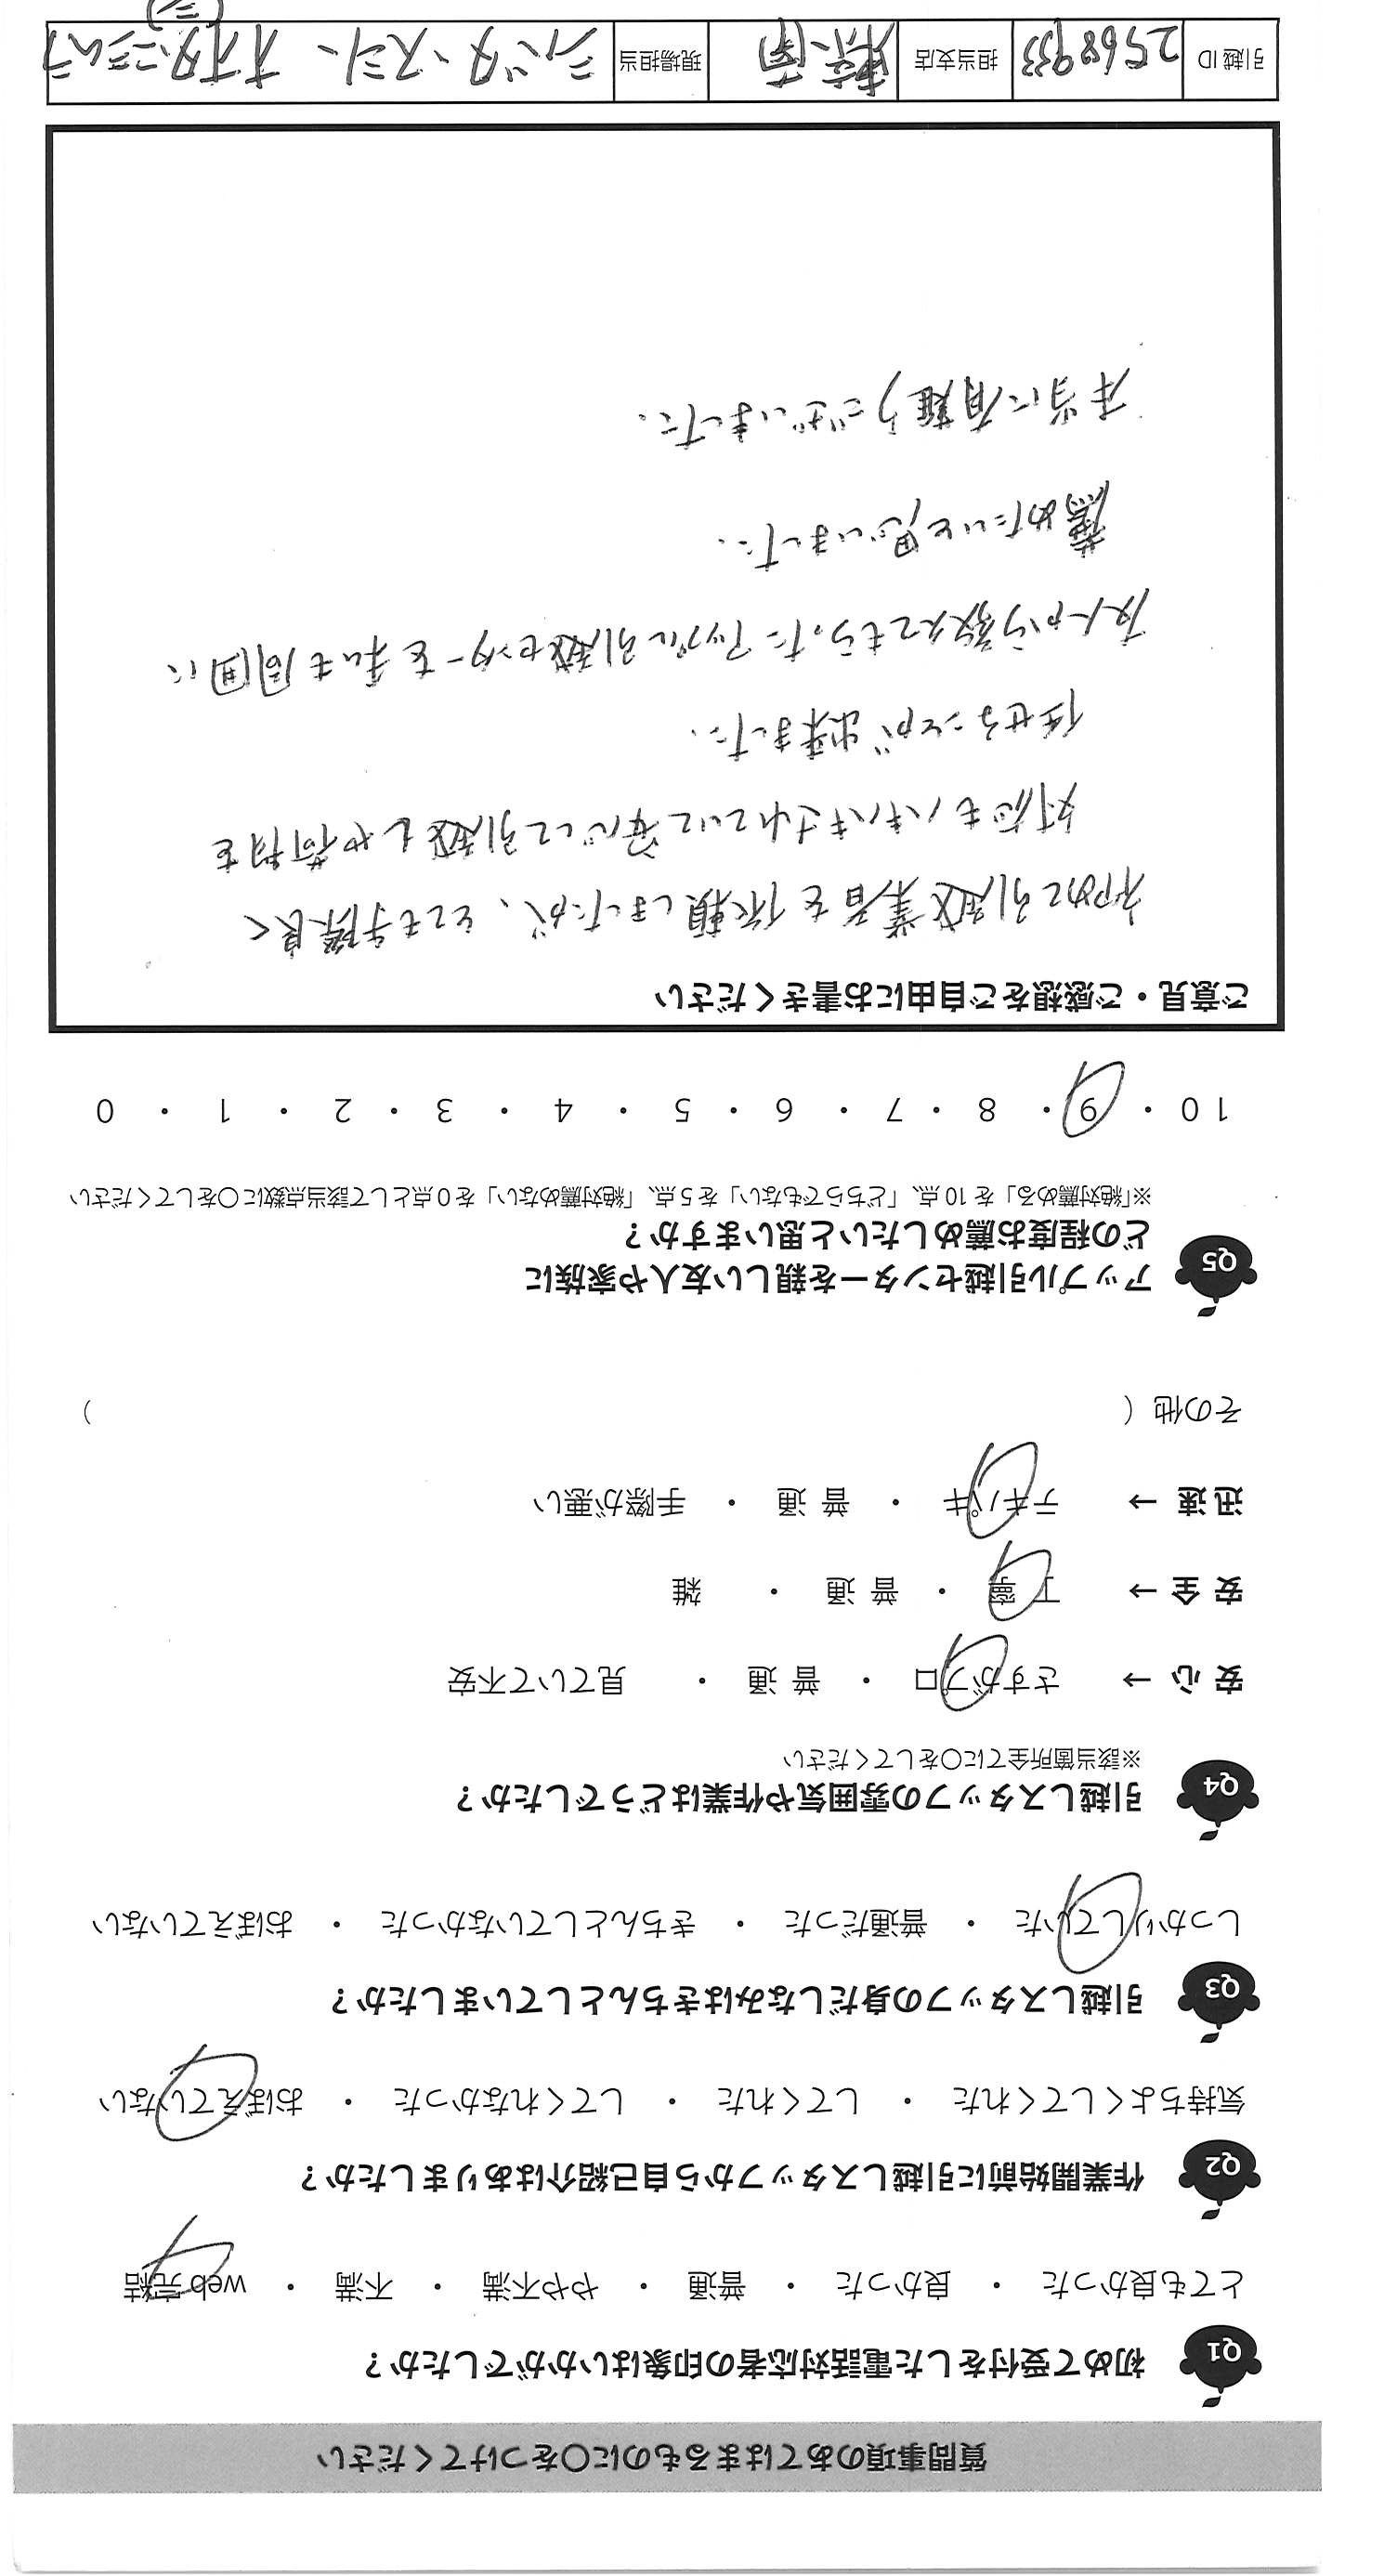 質問事項のあてはまるものに○をつけてください
Q1 初めて受付をした電話対応者の印象はいかがでしたか？
とても良かった ・ 良かった ・ 普通 ・ やや不満 ・ 不満 ・ web完結
Q2 作業開始前に引越しスタッフから自己紹介はありましたか？
気持ちよくしてくれた ・ してくれた ・ してくれなかった ・ おぼえていない
Q3 引越しスタッフの身だしなみはきちんとしていましたか？
しっかりしていた ・ 普通だった ・ きちんとしていなかった ・ おぼえていない
Q4 引越しスタッフの雰囲気や作業はどうでしたか？
※該当箇所全てに○をしてください
安心→ さすがプロ ・ 普通 ・ 見ていて不安
安全→ 丁寧 ・ 普通 ・ 雑
迅速→ テキパキ ・ 普通 ・ 手際が悪い
その他（ ）
Q5 アップル引越センターを親しい友人や家族に
どの程度お薦めしたいと思いますか？
※「絶対薦める」を10点、「どちらでもない」を5点、「絶対薦めない」を0点として該当点数に○をしてください
10 ・ 9 ・ 8 ・ 7 ・ 6 ・ 5 ・ 4 ・ 3 ・ 2 ・ 1 ・ 0
ご意見・ご感想をご自由にお書きください
初めて引越業者を依頼しましたが、とても手際良く
対応もハキハキされていて安心して引越しや荷物を
任せることが出来ました。
友人から教えてもらったアップル引越センターを私も周囲に
薦めたいと思いました。
本当に有難うございました。
引越ID 2568933 担当支店 東京南 現場担当